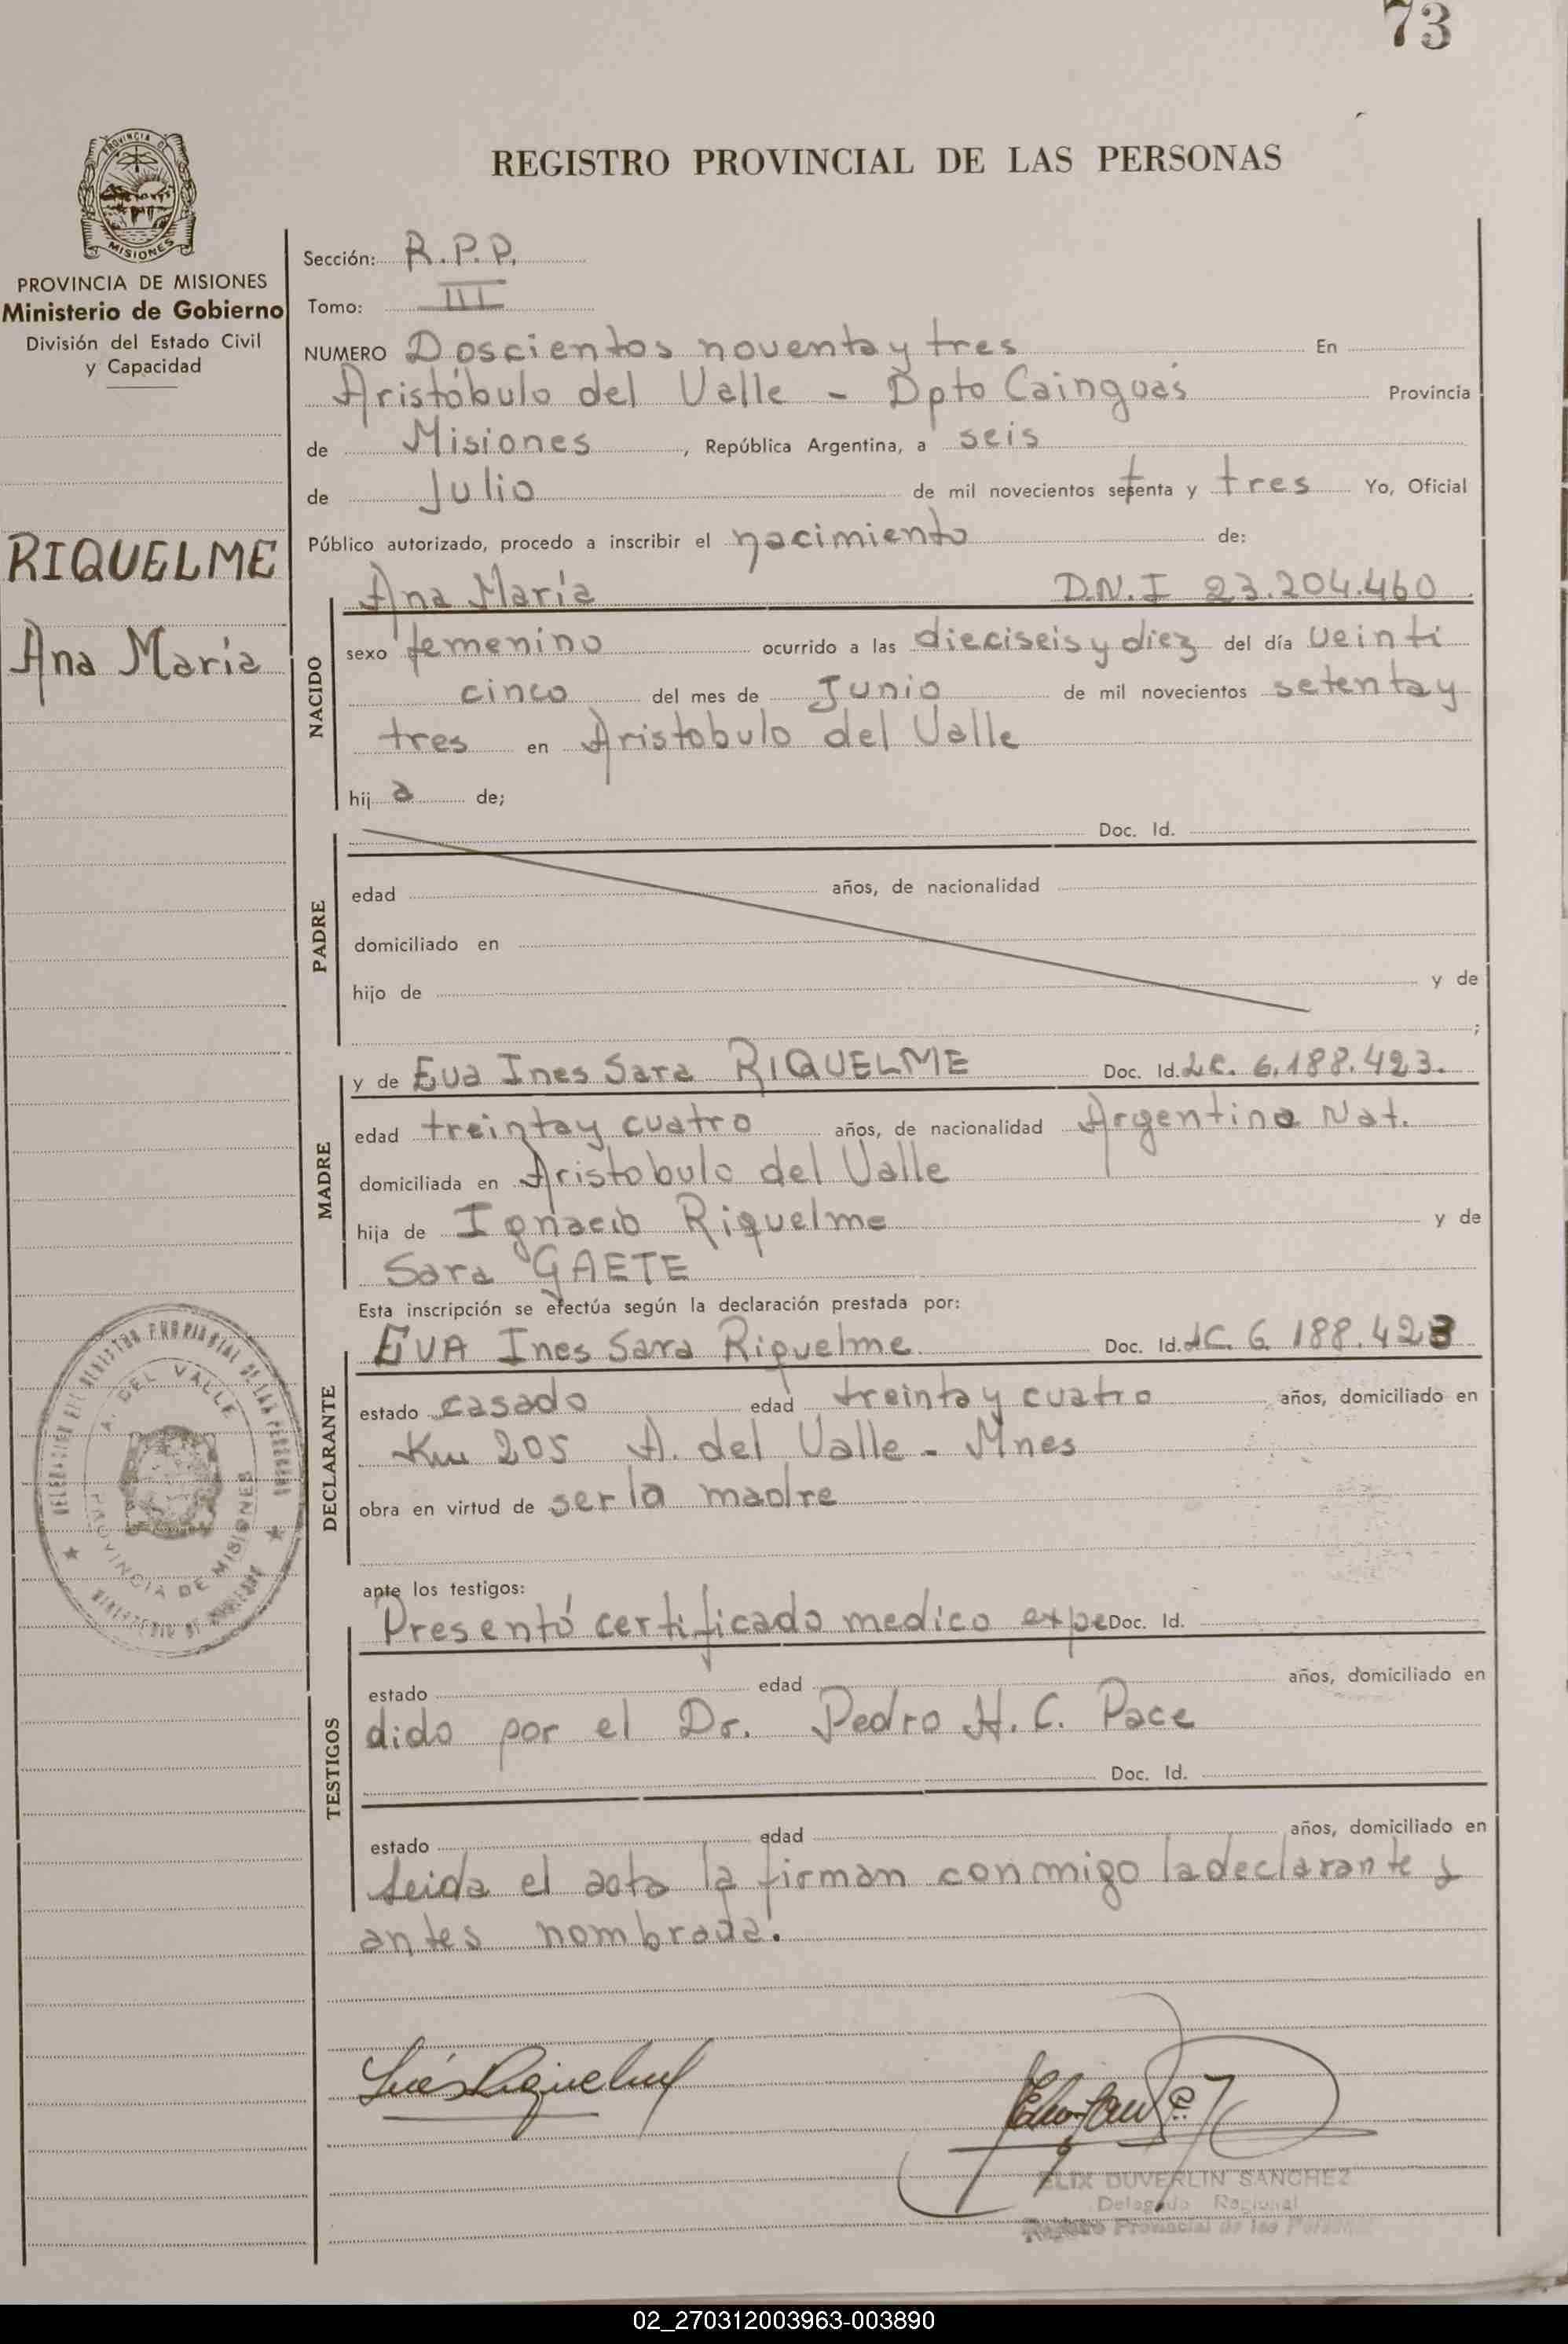 73
REGISTRO PROVINCIAL DE LAS PERSONAS
PROVINCIA DE MISIONES
Ministerio de Gobierno
División del Estado Civil
y Capacidad
RIQUELME
Ana María
Sección: R.P.P.
Tomo: III
NUMERO Doscientos noventa y tres En
Aristóbulo del Valle - Dpto Cainguás Provincia
de Misiones, República Argentina, a seis
de Julio de mil novecientos setenta y tres Yo, Oficial
Público autorizado, procedo a inscribir el nacimiento de:
NACIDO
Ana María D.N.I 23.204.460
sexo femenino ocurrido a las dieciseis y diez del día veinti
cinco del mes de Junio de mil novecientos setenta y
tres en Aristobulo del Valle
hija de;
PADRE
Doc. Id.
edad años, de nacionalidad
domiciliado en
hijo de y de
;
MADRE
y de Eva Ines Sara RIQUELME Doc. Id. LC. 6.188.423.
edad treinta y cuatro años, de nacionalidad Argentina Nat.
domiciliada en Aristobulo del Valle
hija de Ignacio Riquelme y de
Sara GAETE
Esta inscripción se efectúa según la declaración prestada por:
DECLARANTE
EVA Ines Sara Riquelme Doc. Id. LC. 6.188.423
estado casado edad treinta y cuatro años, domiciliado en
Km 205 A. del Valle - Mnes
obra en virtud de ser la madre
ante los testigos:
TESTIGOS
Presentó certificado medico expe Doc. Id.
estado edad años, domiciliado en
dido por el Dr. Pedro H. C. Pace
Doc. Id.
estado edad años, domiciliado en
Leida el acta la firman conmigo la declarante y
antes nombrada.
Inés Riquelme
ELIX DUVERLIN SANCHEZ
Delegado Regional
Registro Provincial de las Personas
A. DEL VALLE
PROVINCIA DE MISIONES
02_270312003963-003890